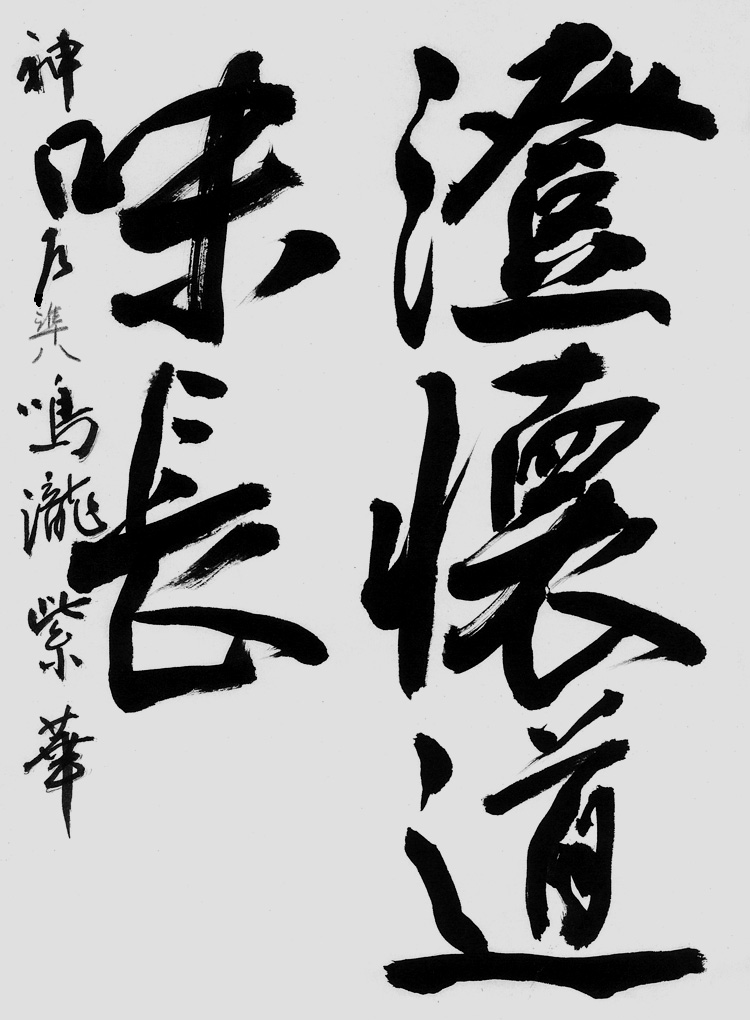 澄懐道
味長
神 準八 鳴瀧 紫華